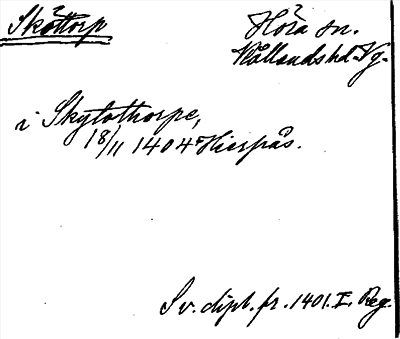 Sköttorp
Höra sn.
Kållands hd. Vg.
i Skytothorpe,
18/11 1404 Hierpås.
Sv. dipl. fr. 1401. I. Reg.